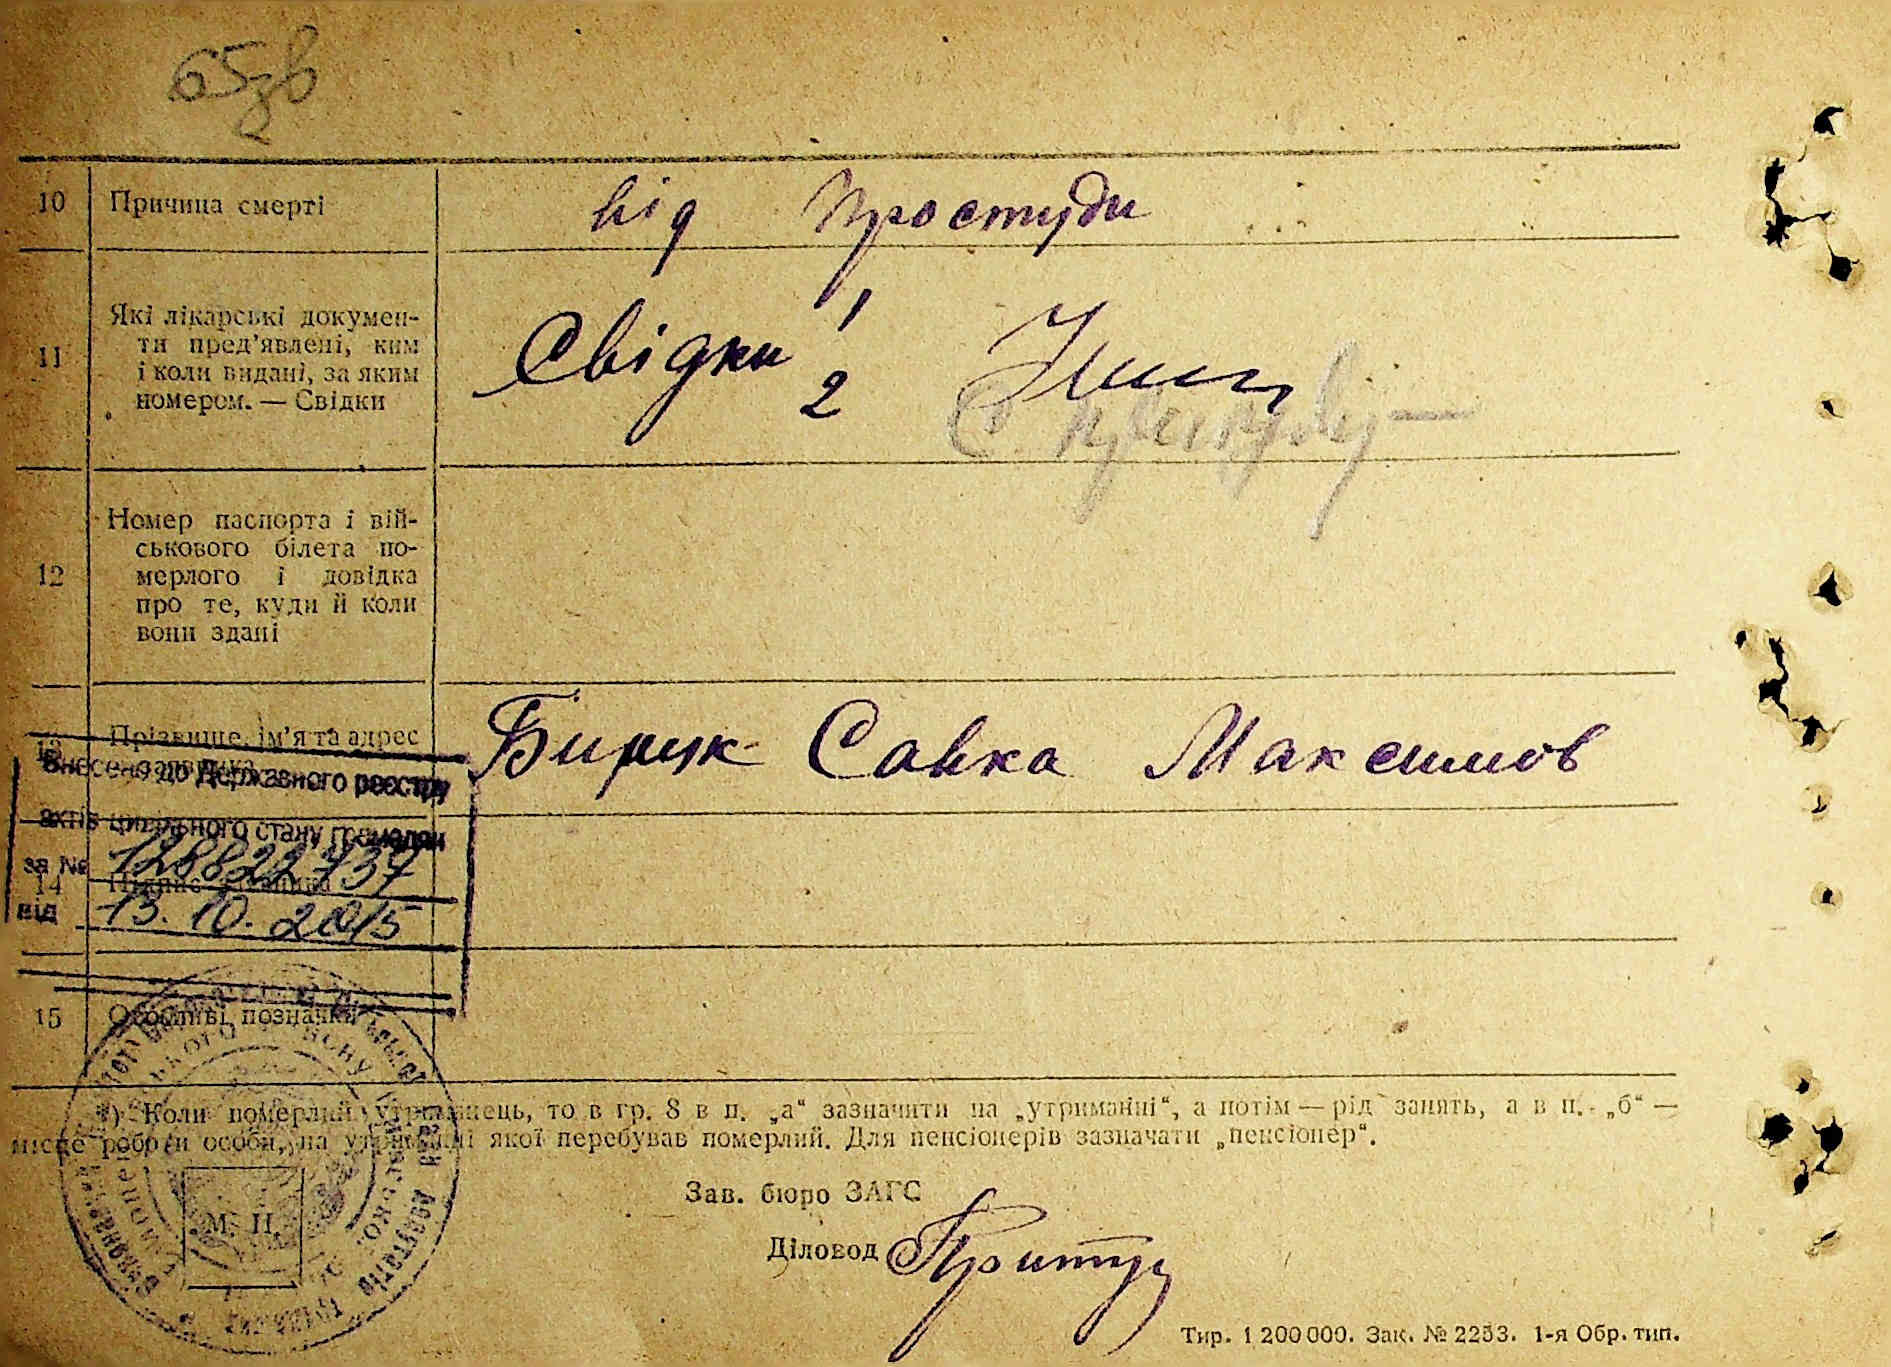 65зв
10 Причина смерті від Простуди
11 Які лікарські докумен-
ти пред'явлені, ким
і коли видані, за яким
номером. — Свідки
Свідки 1
2
12 Номер паспорта і вій-
ськового білета по-
мерлого і довідка
про те, куди й коли
вони здані
13 Прізвище, ім'я та адрес
заявника
Бирук Савка Максимов
Внесено до Державного реєстру
актів цивільного стану громадян
за № 128822737
14 Підпис заявника
від 13.10.2015
15 Особливі позначки
*) Коли померлий утриманець, то в гр. 8 в п. „а“ зазначити на „утриманні“, а потім — рід занять, а в п. „б“ —
місце роботи особи, на утриманні якої перебував померлий. Для пенсіонерів зазначати „пенсіонер“.
М. П.
Зав. бюро ЗАГС
Діловод
Тир. 1 200 000. Зак. № 2253. 1-я Обр. тип.